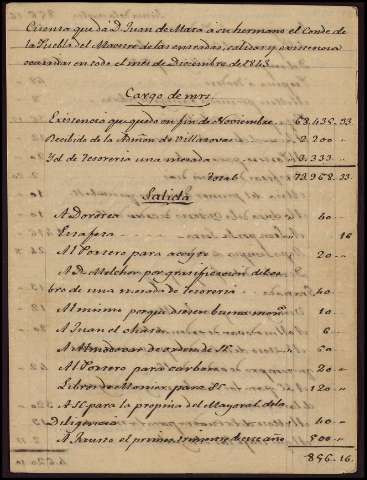 Cuenta que dá D. Juan de Mata á su hermano el Conde de
la Puebla del Maestre de las entradas, salidas y existencia
ocurridas en todo el mes de Diciembre de 1843.
Cargo de mrs.
Existencia que quedó en fin de Noviembre 68.435..33
Recibido de la Admon de Villanova 2.200 ..
Yd. de Tesoreria una mesada 3.333 ..
Total 73.968.33
Salida
A Dorotea 40 ..
Estafeta 16
Al Portero para aceyte 20 ..
A D. Melchor por gratificacion del co-
bro de una mesada de tesoreria 40 ..
Al mismo porque dieren buena mon.
10 ..
A Juan el 6 ..
A Almodovar de orden de SE 60
Al Portero para carbon 20 ..
Libros de Monier para SE 120 ..
A SE para la propina del Mayoral de la
Diligencia 40 ..
A Fausto el primer trimestre de ese año 500 ..
856.16.